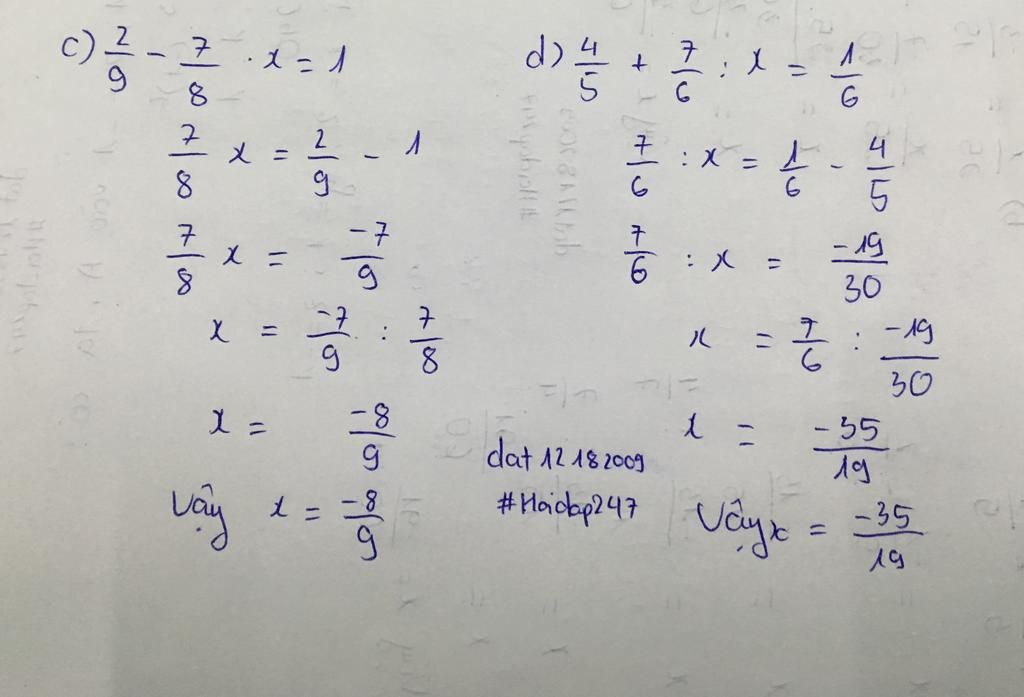 c) 2/9 - 7/8 . x = 1
7/8 x = 2/9 - 1
7/8 x = -7/9
x = -7/9 : 7/8
x = -8/9
Vậy x = -8/9
d) 4/5 + 7/6 : x = 1/6
7/6 : x = 1/6 - 4/5
7/6 : x = -19/30
x = 7/6 : -19/30
x = -35/19
Vậy x = -35/19
dat12182009
#Hoidap247